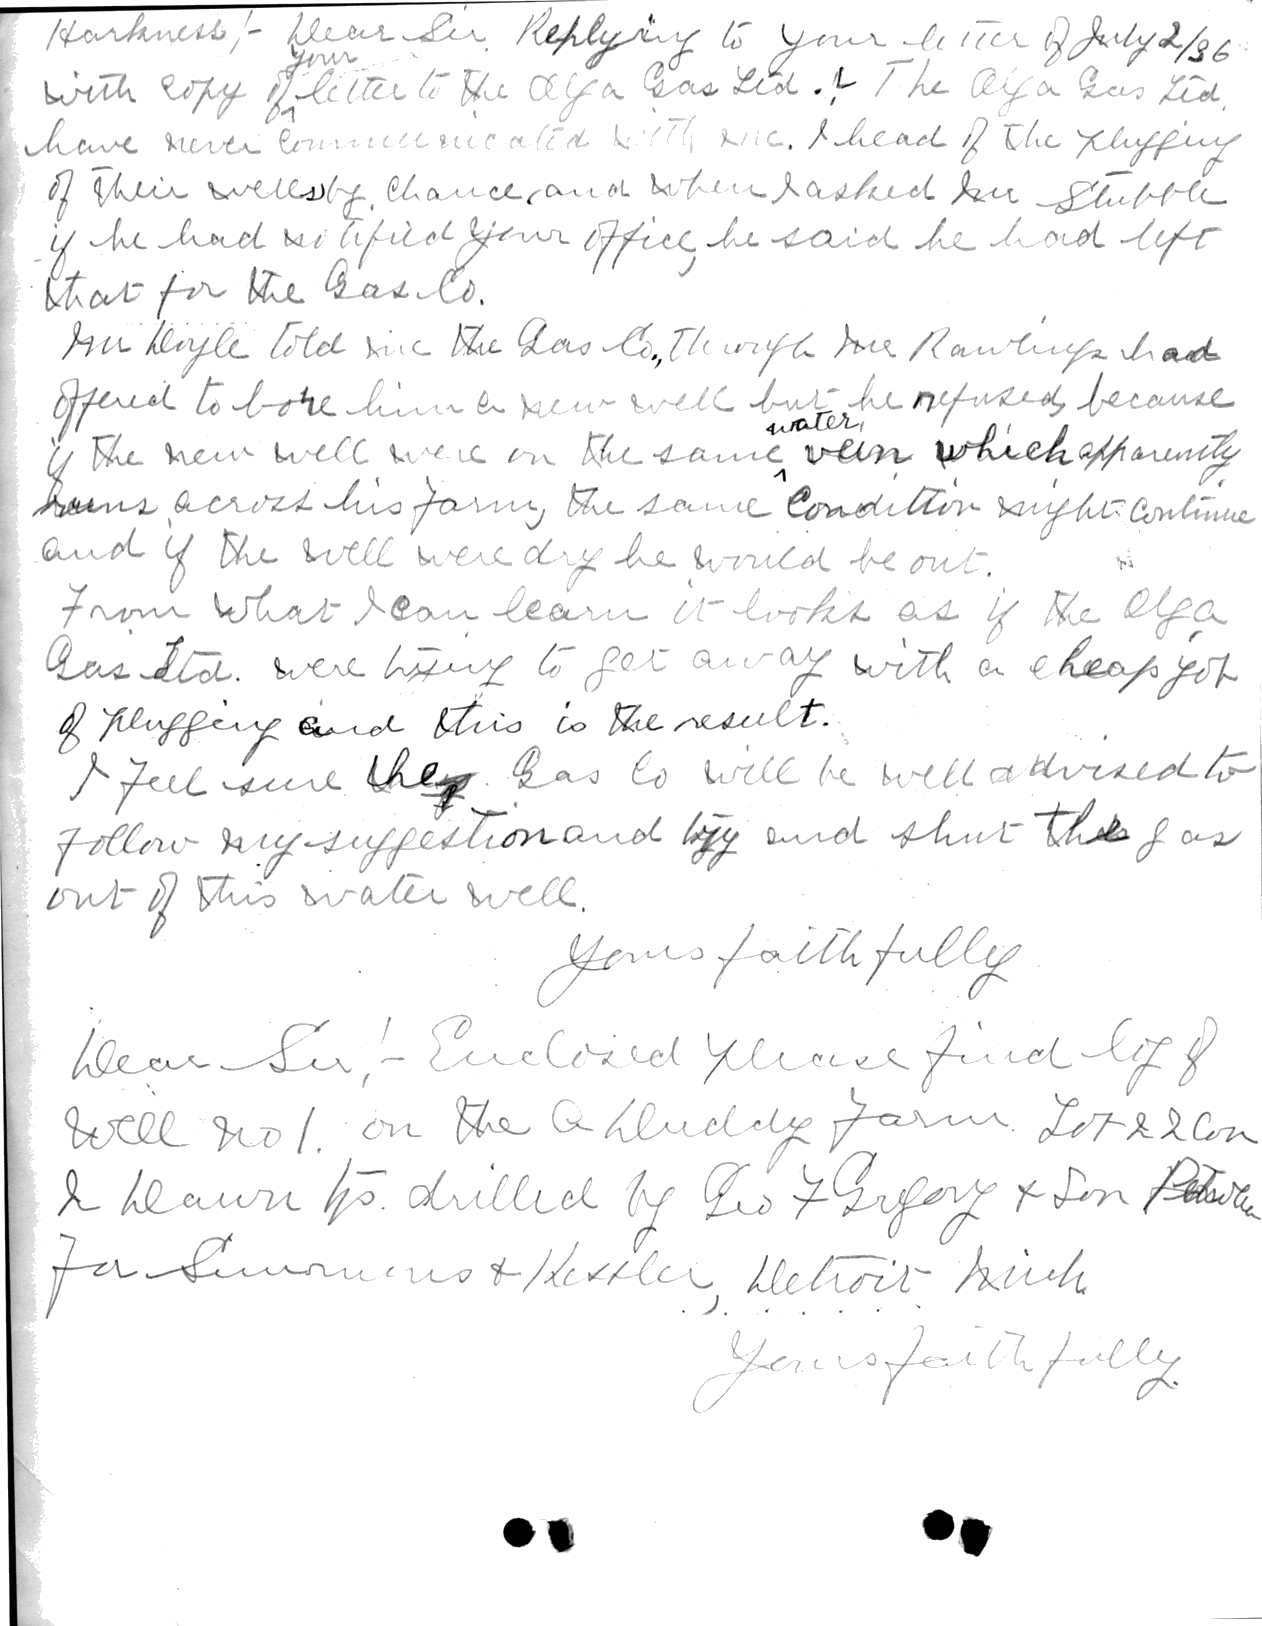 Harkness,!- Dear Sir. Replying to your letter of July 2/36
with copy of your letter to the Olga Gas Ltd. !- The Olga Gas Ltd.
have never communicated with me. I head of the plugging
of their wells by chance, and when I asked Mr Stubble
if he had notified your office, he said he had left
that for the Gas Co.
Mr Doyle told me the Gas Co., through Mr Rawlings had
offered to bore him a new well but he refused, because
if the new well were on the same water vein which apparently
runs across his farm, the same condition might continue
and if the well were dry he would be out.
From what I can learn it looks as if the Olga
Gas Ltd. were trying to get away with a cheap job
of plugging and this is the result.
I feel sure the Gas Co will be well advised to
follow my suggestion and try and shut the gas
out of this water well.
Yours faithfully
Dear Sir,!- Enclosed please find log of
well no 1. on the A Duddy Farm. Lot 22 Con
2 Dawn Tp. drilled by Geo F Gregory & Son
For Simmons & Kessler, Detroit Mich
Yours faithfully.